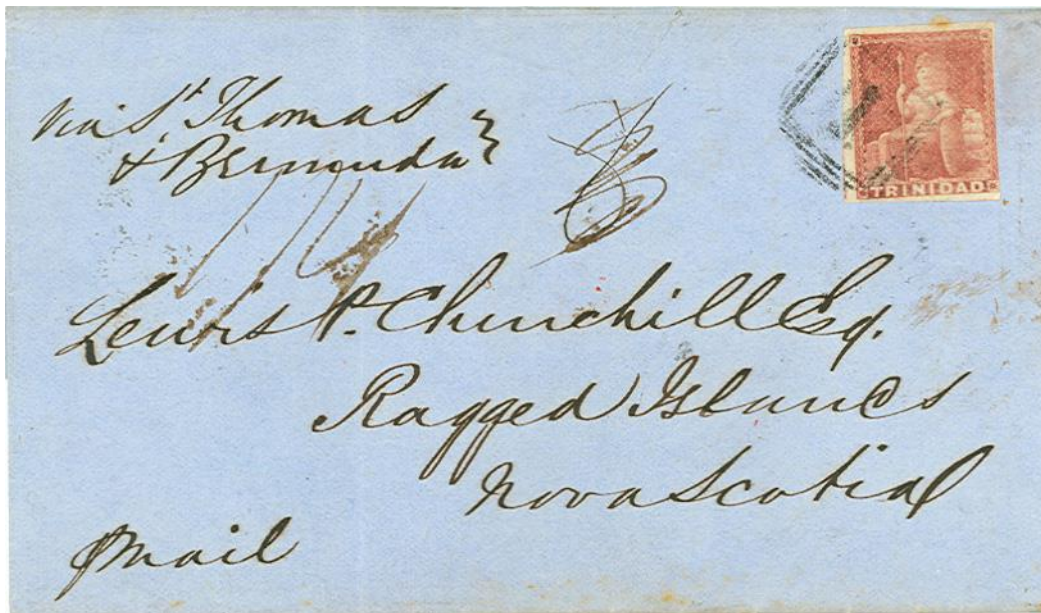 via St. Thomas
& Bermuda
TRINIDAD
Lewis P. Churchill Esq.
Ragged Islands
Nova Scotia
pmail